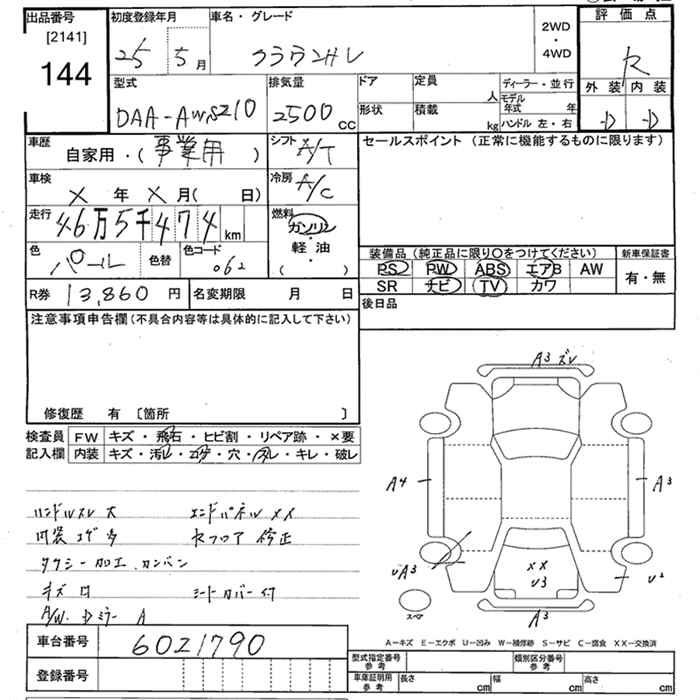 出品番号
[2141]
144
初度登録年月
25 5月
車名・グレード
クラウンHV
2WD
・
4WD
評価点
R
外装 内装
D D
型式
DAA-AWS210
排気量
2500cc
ドア
定員
人
形状
積載
kg
ディーラー・並行
モデル年式 年
ハンドル 左・右
車歴
自家用・(事業用)
シフト
A/T
セールスポイント (正常に機能するものに限ります)
車検
X年X月( 日)
冷房
A/C
走行
46万5千474km
燃料
ガソリン
・
軽油
( )
色
パール
色替
色コード
062
装備品 (純正品に限り○をつけてください)
新車保証書
PS PW ABS エアB AW
SR ナビ TV カワ
有・無
R券 13,860円
名変期限 月 日
後日品
注意事項申告欄 (不具合内容等は具体的に記入して下さい)
修復歴 有 〔箇所 〕
検査員記入欄
FW キズ・飛石・ヒビ割・リペア跡・×要
内装 キズ・汚レ・コゲ・穴・スレ・キレ・破レ
ハンドルスレ大 エンドパネルXX
内装コゲ多 Rフロア修正
タクシー加工.カンバン
キズ シートカバー付
A/W.Dミラー A
A3 ズレ
A4
A3
UA3
XX
U3
U2
スペア
A3
A-キズ E-エクボ U-凹み W-補修跡 S-サビ C-腐食 XX-交換済
車台番号 6021790
登録番号
型式指定番号
参考
類別区分番号
参考
車庫証明用
参考
長さ cm
幅 cm
高さ cm